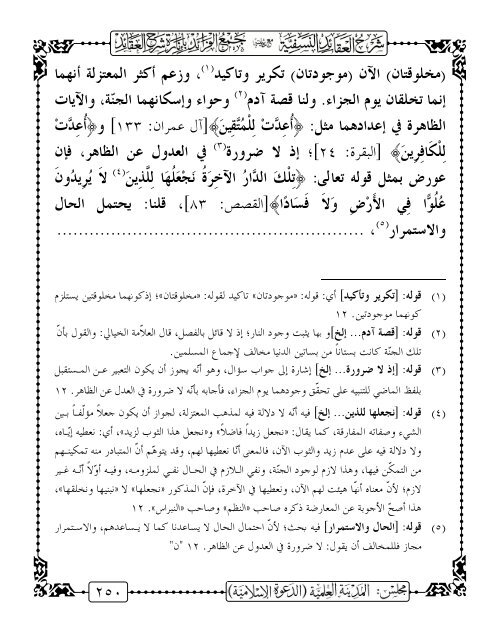 شرح العقائد النسفية مع حاشيته جمع الفرائد بإنارة شرح العقائد
(مخلوقتان) الآن (موجودتان) تكرير وتاكيد(١)، وزعم أكثر المعتزلة أنهما
إنما تخلقان يوم الجزاء. ولنا قصة آدم(٢) وحواء وإسكانهما الجنّة، والآيات
الظاهرة في إعدادهما مثل: ﴿أُعِدَّتْ لِلْمُتَّقِينَ﴾[آل عمران: ١٣٣] و﴿أُعِدَّتْ
لِلْكَافِرِينَ﴾ [البقرة: ٢٤]؛ إذ لا ضرورة(٣) في العدول عن الظاهر، فإن
عورض بمثل قوله تعالى: ﴿تِلْكَ الدَّارُ الآخِرَةُ نَجْعَلُهَا لِلَّذِينَ(٤) لاَ يُرِيدُونَ
عُلُوًّا فِي الأَرْضِ وَلاَ فَسَادًا﴾[القصص: ٨٣]، قلنا: يحتمل الحال
والاستمرار(٥)، ........................................................
(١) قوله: [تكرير وتأكيد] أي: قوله: «موجودتان» تاكيد لقوله: «مخلوقتان»؛ إذكونهما مخلوقتين يستلزم
كونهما موجودتين. ١٢
(٢) قوله: [قصة آدم... إلخ]و بها يثبت وجود النار؛ إذ لا قائل بالفصل، قال العلاّمة الخيالي: والقول بأنّ
تلك الجنّة كانت بستاناً من بساتين الدنيا مخالف لإجماع المسلمين.
(٣) قوله: [إذ لا ضرورة... إلخ] إشارة إلى جواب سؤال، وهو أنّه يجوز أن يكون التعبير عن المستقبل
بلفظ الماضي للتنبيه على تحقّق وجودهما يوم الجزاء، فأجابه بأنّه لا ضرورة في العدل عن الظاهر. ١٢
(٤) قوله: [نجعلها للذين... إلخ] فيه أنّه لا دلالة فيه لمذهب المعتزلة، لجواز أن يكون جعلاً مؤلّفاً بين
الشيء وصفاته المفارقة، كما يقال: «نجعل زيداً فاضلاً» و«نجعل هذا الثوب لزيد»، أي: نعطيه إيّاه،
ولا دلالة فيه على عدم زيد والثوب الآن، فالمعنى أنّا نعطيها لهم، وقد يتوهّم أنّ المتبادر منه تمكينهم
من التمكّن فيها، وهذا لازم لوجود الجنّة، ونفي اللازم في الحال نفي لملزومه، وفيه أوّلاً أنّه غير
لازم؛ لأنّ معناه أنها هيئت لهم الآن، ونعطيها في الآخرة، فإنّ المذكور «نجعلها» لا «نبنيها ونخلقها»،
هذا أصحّ الأجوبة عن المعارضة ذكره صاحب «النظم» وصاحب «النبراس». ١٢
(٥) قوله: [الحال والاستمرار] فيه بحث؛ لأنّ احتمال الحال لا يساعدنا كما لا يساعدهم، والاستمرار
مجاز فللمخالف أن يقول: لا ضرورة في العدول عن الظاهر. ١٢ "ن"
مجلس: المدينة العلمية (الدعوة الإسلامية) ٢٥٠